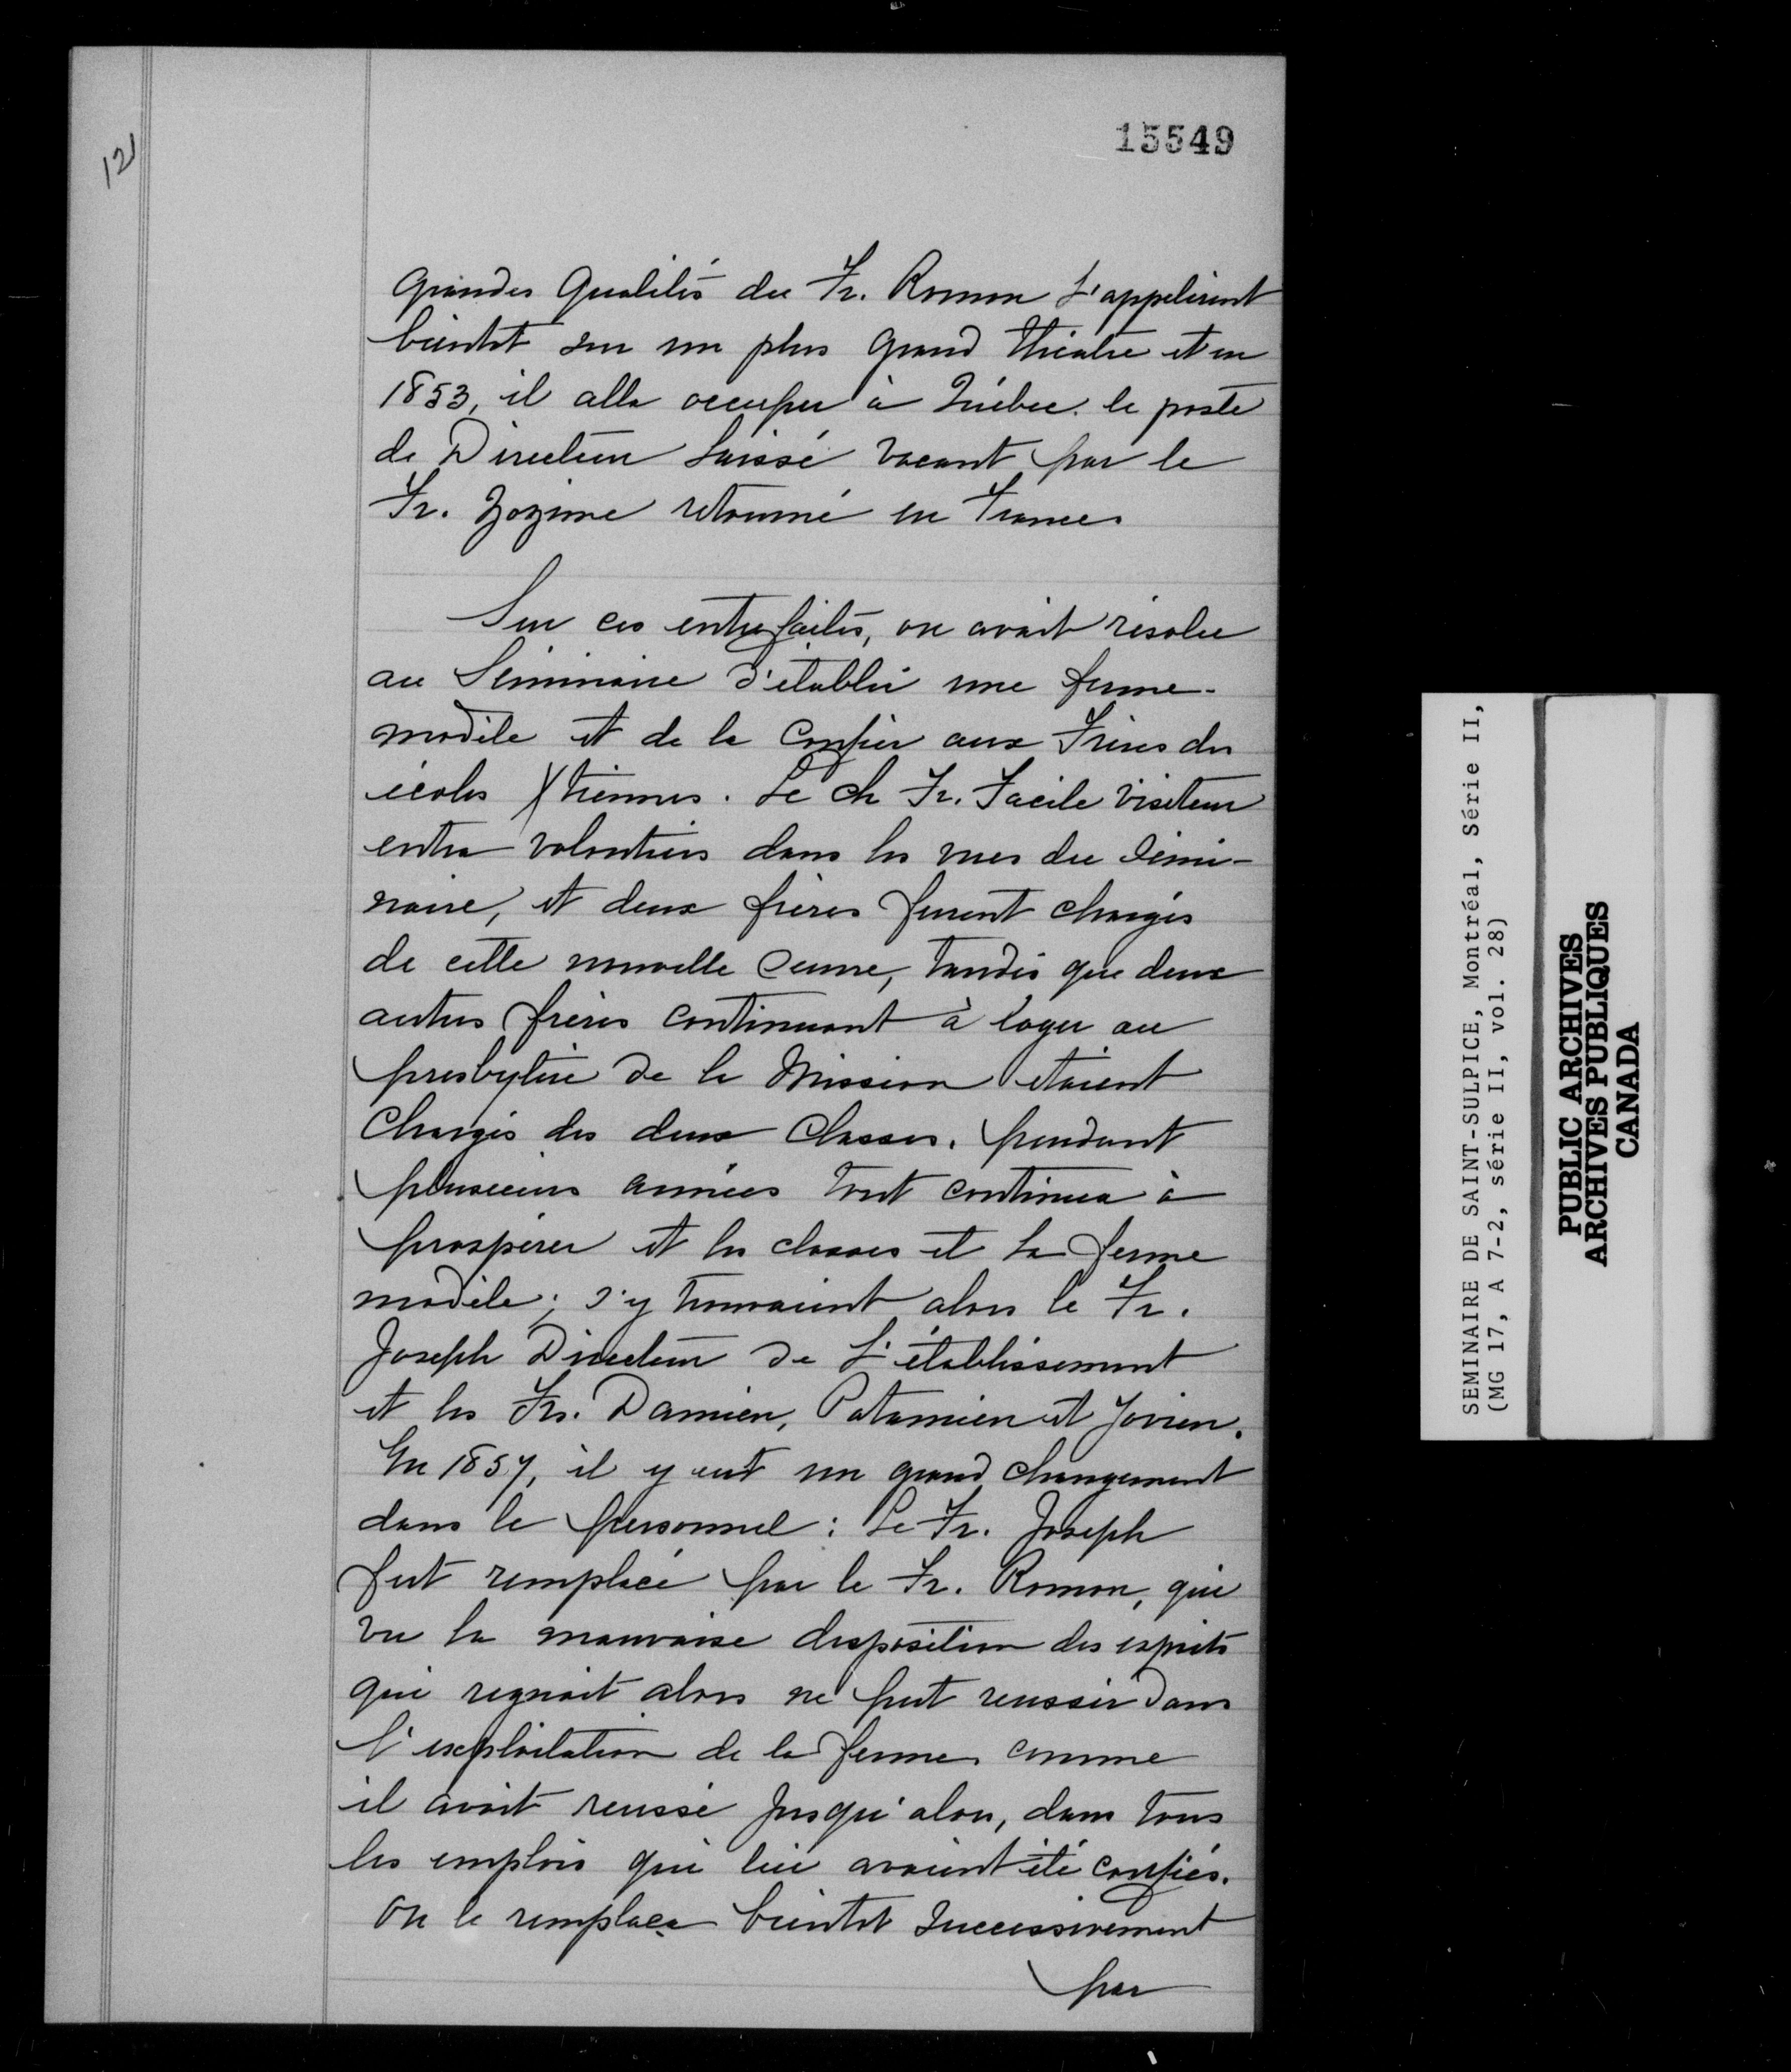 15549
121
Grandes Qualités du Fr. Romon l'appelèrent
bientot sur un plus Grand théatre et en
1853, il alla occuper à Québec le poste
de Directeur laissé vacant par le
Fr. Zozime retourné en France.
Sur ces entrefaites, on avait résolu
au Séminaire d'établir une ferme-
modèle et de la Confier aux Frères des
écoles Xtiennes. Le ch Fr. Facile Visiteur
entra volontiers dans les vues du Sémi-
naire, et deux frères furent chargés
de cette nouvelle Oeuvre, tandis que deux
autres frères continuant à loger au
presbytère de la Mission étaient
Chargés des deux Classes. pendant
plusieurs années tout continua à
prospérer et les classes et la ferme
modèle; s'y trouvaient alors le Fr.
Joseph Directeur de l'établissement
et les Frs. Damien, Patamien et Jovien.
En 1857, il y eut un grand changement
dans le personnel : Le Fr. Joseph
fut remplacé par le Fr. Romon, qui
vu la mauvaise disposition des esprits
qui regnait alors ne put reussir dans
l'exploitation de la ferme comme
il avait reussi jusqu'alors, dans tous
les emplois qui lui avaient été confiés.
On le remplaça bientot Successivement
par
SEMINAIRE DE SAINT-SULPICE, Montréal, Série II,
(MG 17, A 7-2, série II, vol. 28)
PUBLIC ARCHIVES
ARCHIVES PUBLIQUES
CANADA